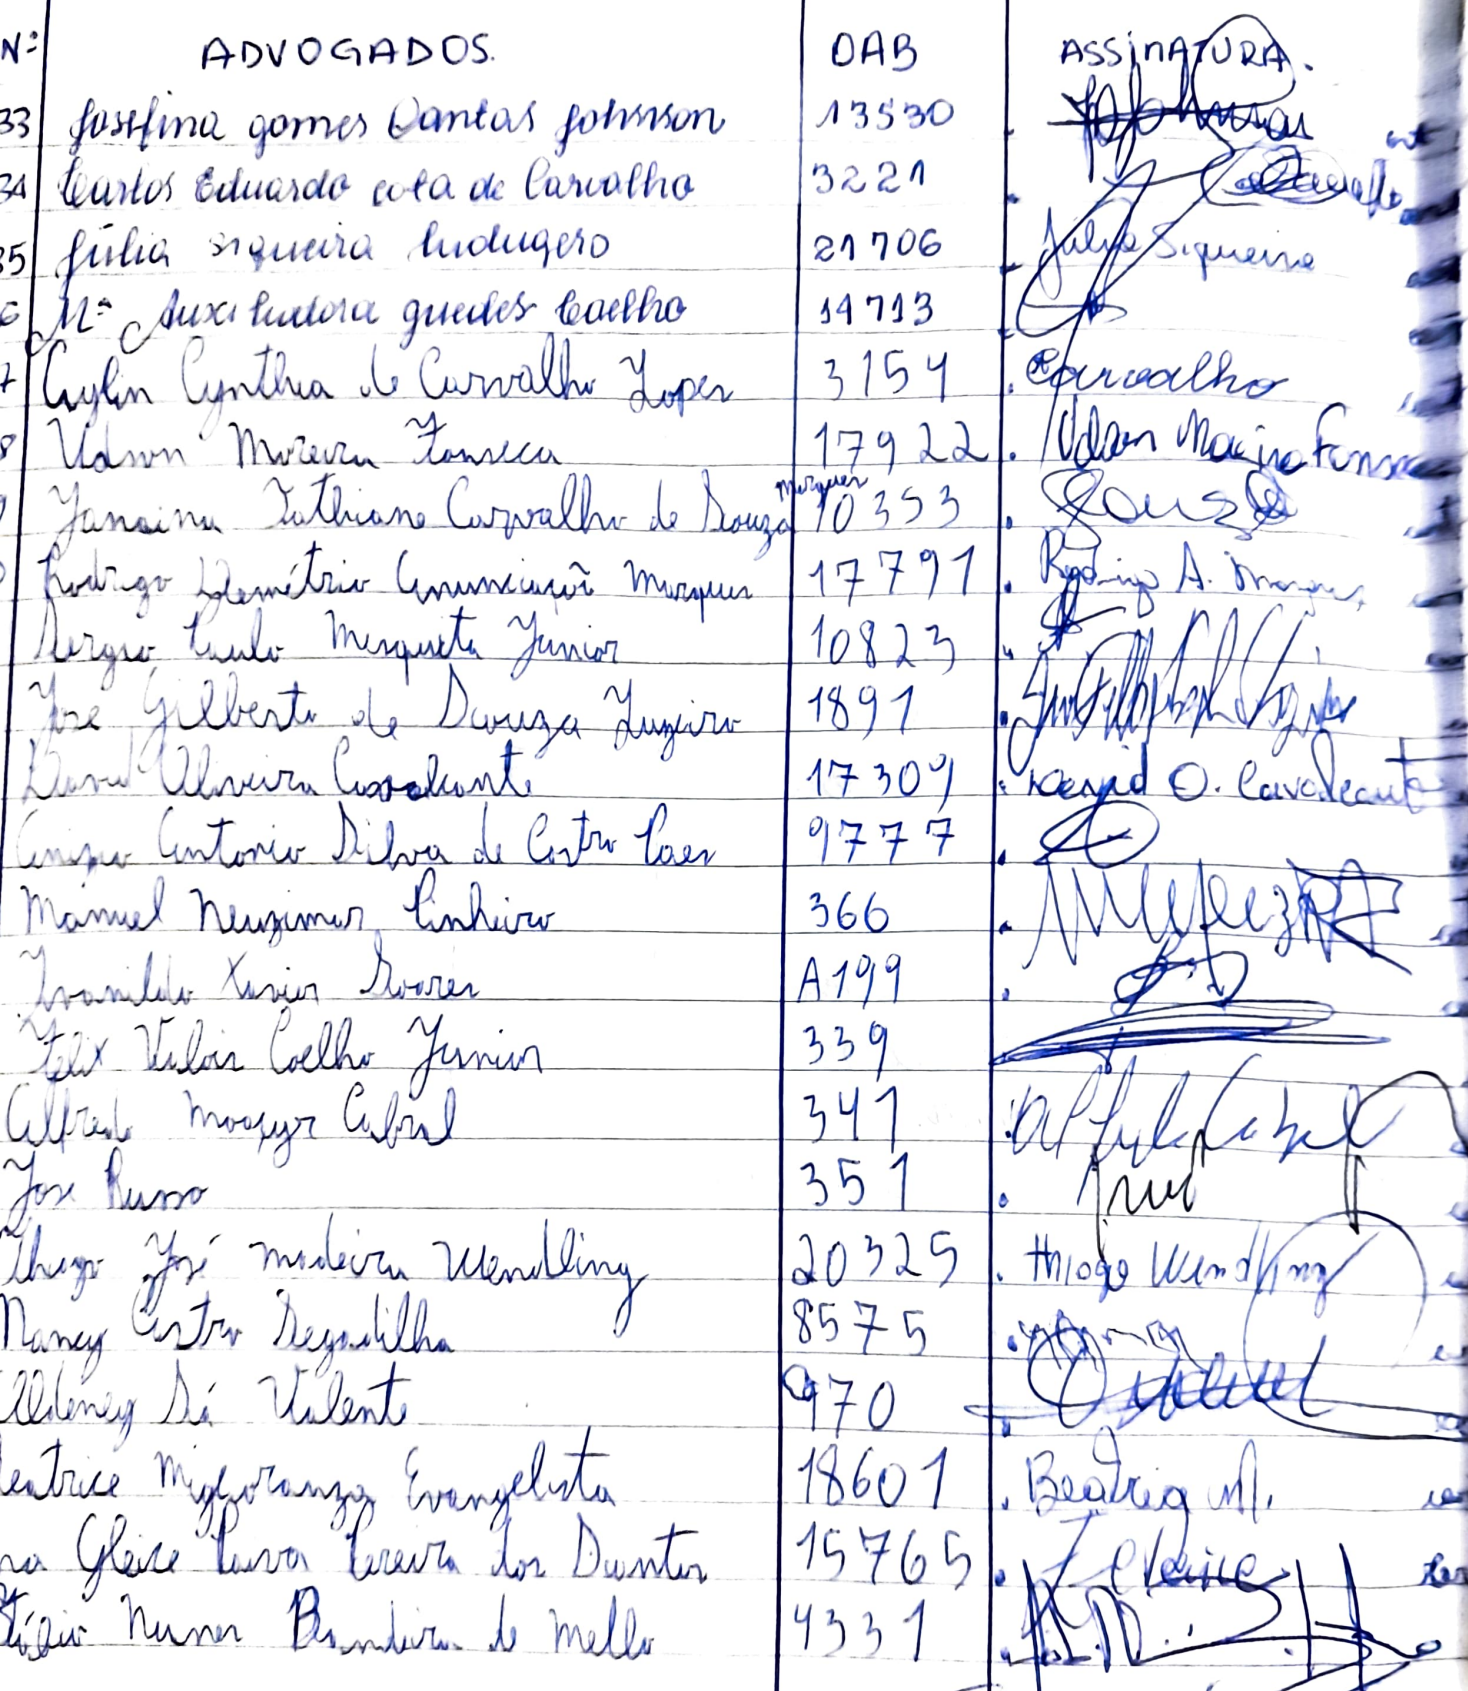 Nº ADVOGADOS. OAB ASSINATURA.
33 Josefina gomes Dantas Johnson 13530
34 Carlos Eduardo cota de Carvalho 3221
35 Júlia Siqueira Ludugero 21706 Julia Siqueira
6 Mª Auxiliadora guedes Coelho 14713
7 Aylin Cynthia de Carvalho Lopes 3154 Carvalho
8 Udson Moreira Fonseca 17922 Udson Moreira Fonseca
Janaina Tathiane Carvalho de Souza Marques 10353 Souza
Rodrigo Demétrio Anunciação Marques 17791 Rodrigo A. Marques
Sergio Paulo Mesquita Junior 10823
José Gilberto de Souza Luzeiro 1891
David Oliveira Cavalcante 17309 David O. Cavalcante
Antonio Silva de Castro Paes 9777
Manuel Neuzimar Pinheiro 366
Ivanildo Xavier Soares A199
Felix Valois Coelho Junior 339
Alfredo Moacyr Cabral 341 Alfredo Cabral
José Russo 351
Thiago José Madeira Wendling 20325 Thiago Wendling
Nancy Castro Segadilha 8575
Aldeney Sá Valente 970
eatrice Miglioranza Evangelista 18601 Beatriz M.
na Gleice Paiva Pereira dos Santos 15765
Nunes Bandeira de Mello 4331